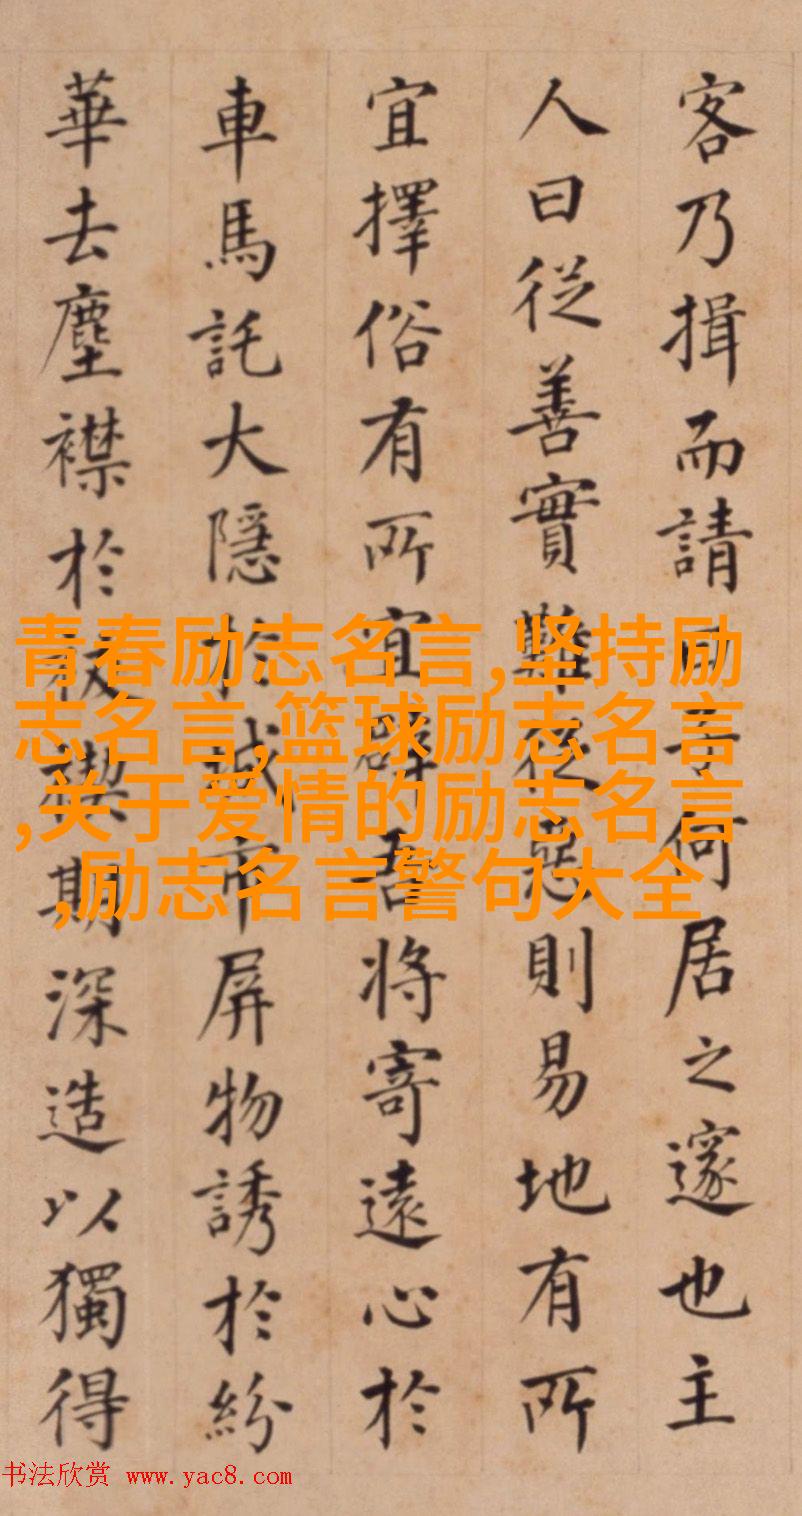 客乃揖而請曰子何居之邃也主
人曰從善實難從惡則易地有所
宜擇俗有所宜辟吾將寄遠心於
車馬託大隱於城市屏物誘於紛
華去塵襟於祓禊期深造以獨得
青春励志名言,坚持励
志名言,篮球励志名言
,关于爱情的励志名言
,励志名言警句大全
书法欣赏 www.yac8.com